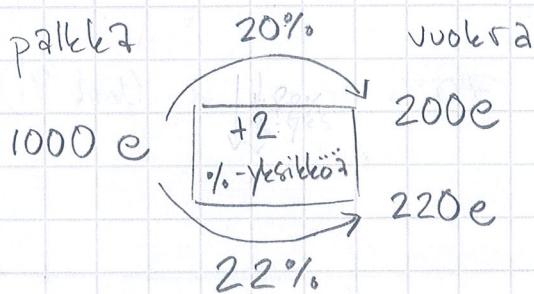 palkka
20%
vuokra
1000 e
+2
%-yksikköä
200e
220e
22%